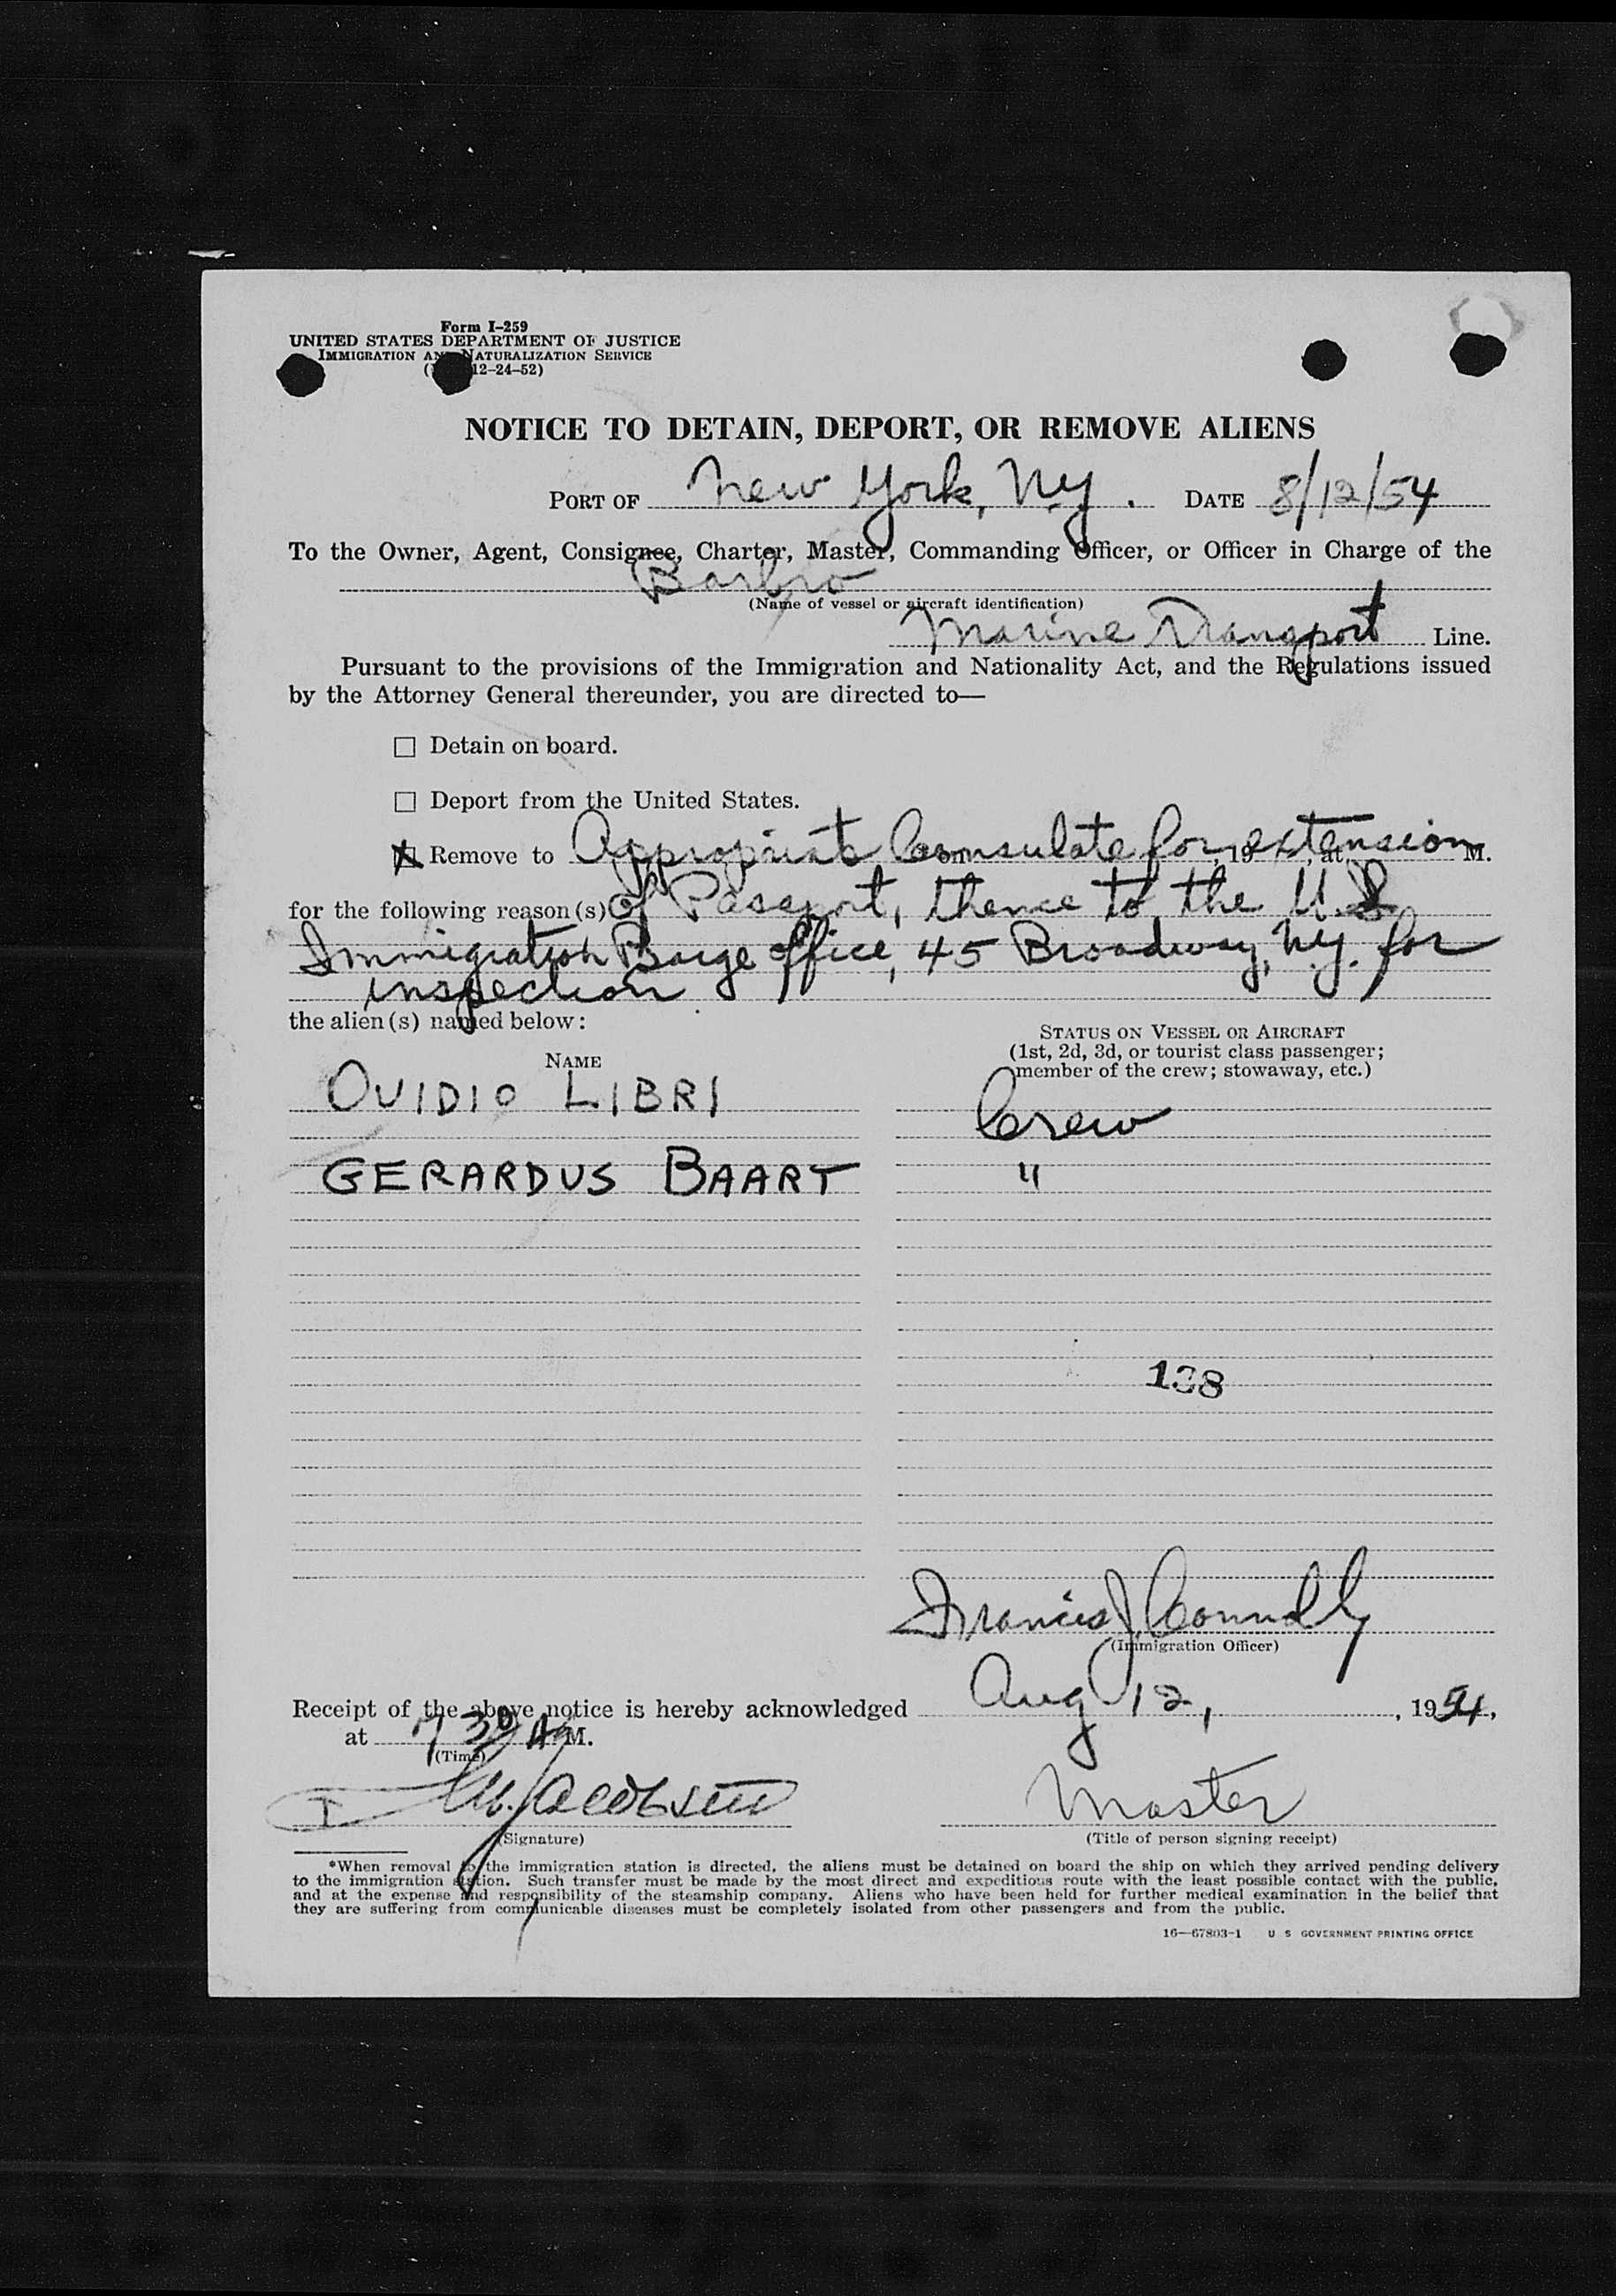 Form I-259
UNITED STATES DEPARTMENT OF JUSTICE
IMMIGRATION AND NATURALIZATION SERVICE
12-24-52)
NOTICE TO DETAIN, DEPORT, OR REMOVE ALIENS
PORT OF New York, N.Y. DATE 8/12/54
To the Owner, Agent, Consignee, Charter, Master, Commanding Officer, or Officer in Charge of the
Barbro
(Name of vessel or aircraft identification)
Marine Transport Line.
Pursuant to the provisions of the Immigration and Nationality Act, and the Regulations issued
by the Attorney General thereunder, you are directed to—
☐ Detain on board.
☐ Deport from the United States.
☒ Remove to Appropriate Consulate for extension on , 19 , at M.
for the following reason(s) of Passport, thence to the U.S.
Immigration Barge office, 45 Broadway, N.Y. for
inspection
the alien(s) named below:
NAME
STATUS ON VESSEL OR AIRCRAFT
(1st, 2d, 3d, or tourist class passenger;
member of the crew; stowaway, etc.)
OVIDIO LIBRI Crew
GERARDUS BAART "
138
Francis J. Connolly
(Immigration Officer)
Receipt of the above notice is hereby acknowledged Aug 12, , 1954,
at 7 30 A M.
(Time)
Jacobsen Master
(Signature) (Title of person signing receipt)
*When removal to the immigration station is directed, the aliens must be detained on board the ship on which they arrived pending delivery
to the immigration station. Such transfer must be made by the most direct and expeditious route with the least possible contact with the public,
and at the expense and responsibility of the steamship company. Aliens who have been held for further medical examination in the belief that
they are suffering from communicable diseases must be completely isolated from other passengers and from the public.
16—67803-1 U S GOVERNMENT PRINTING OFFICE